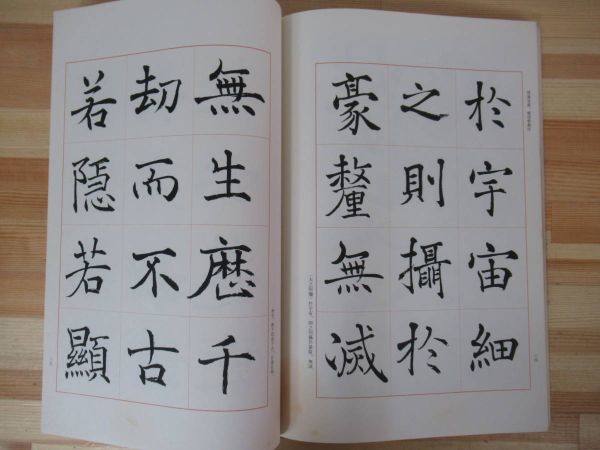 於宇宙細
之則攝於
豪釐無滅
無生歴千
劫而不古
若隱若顯